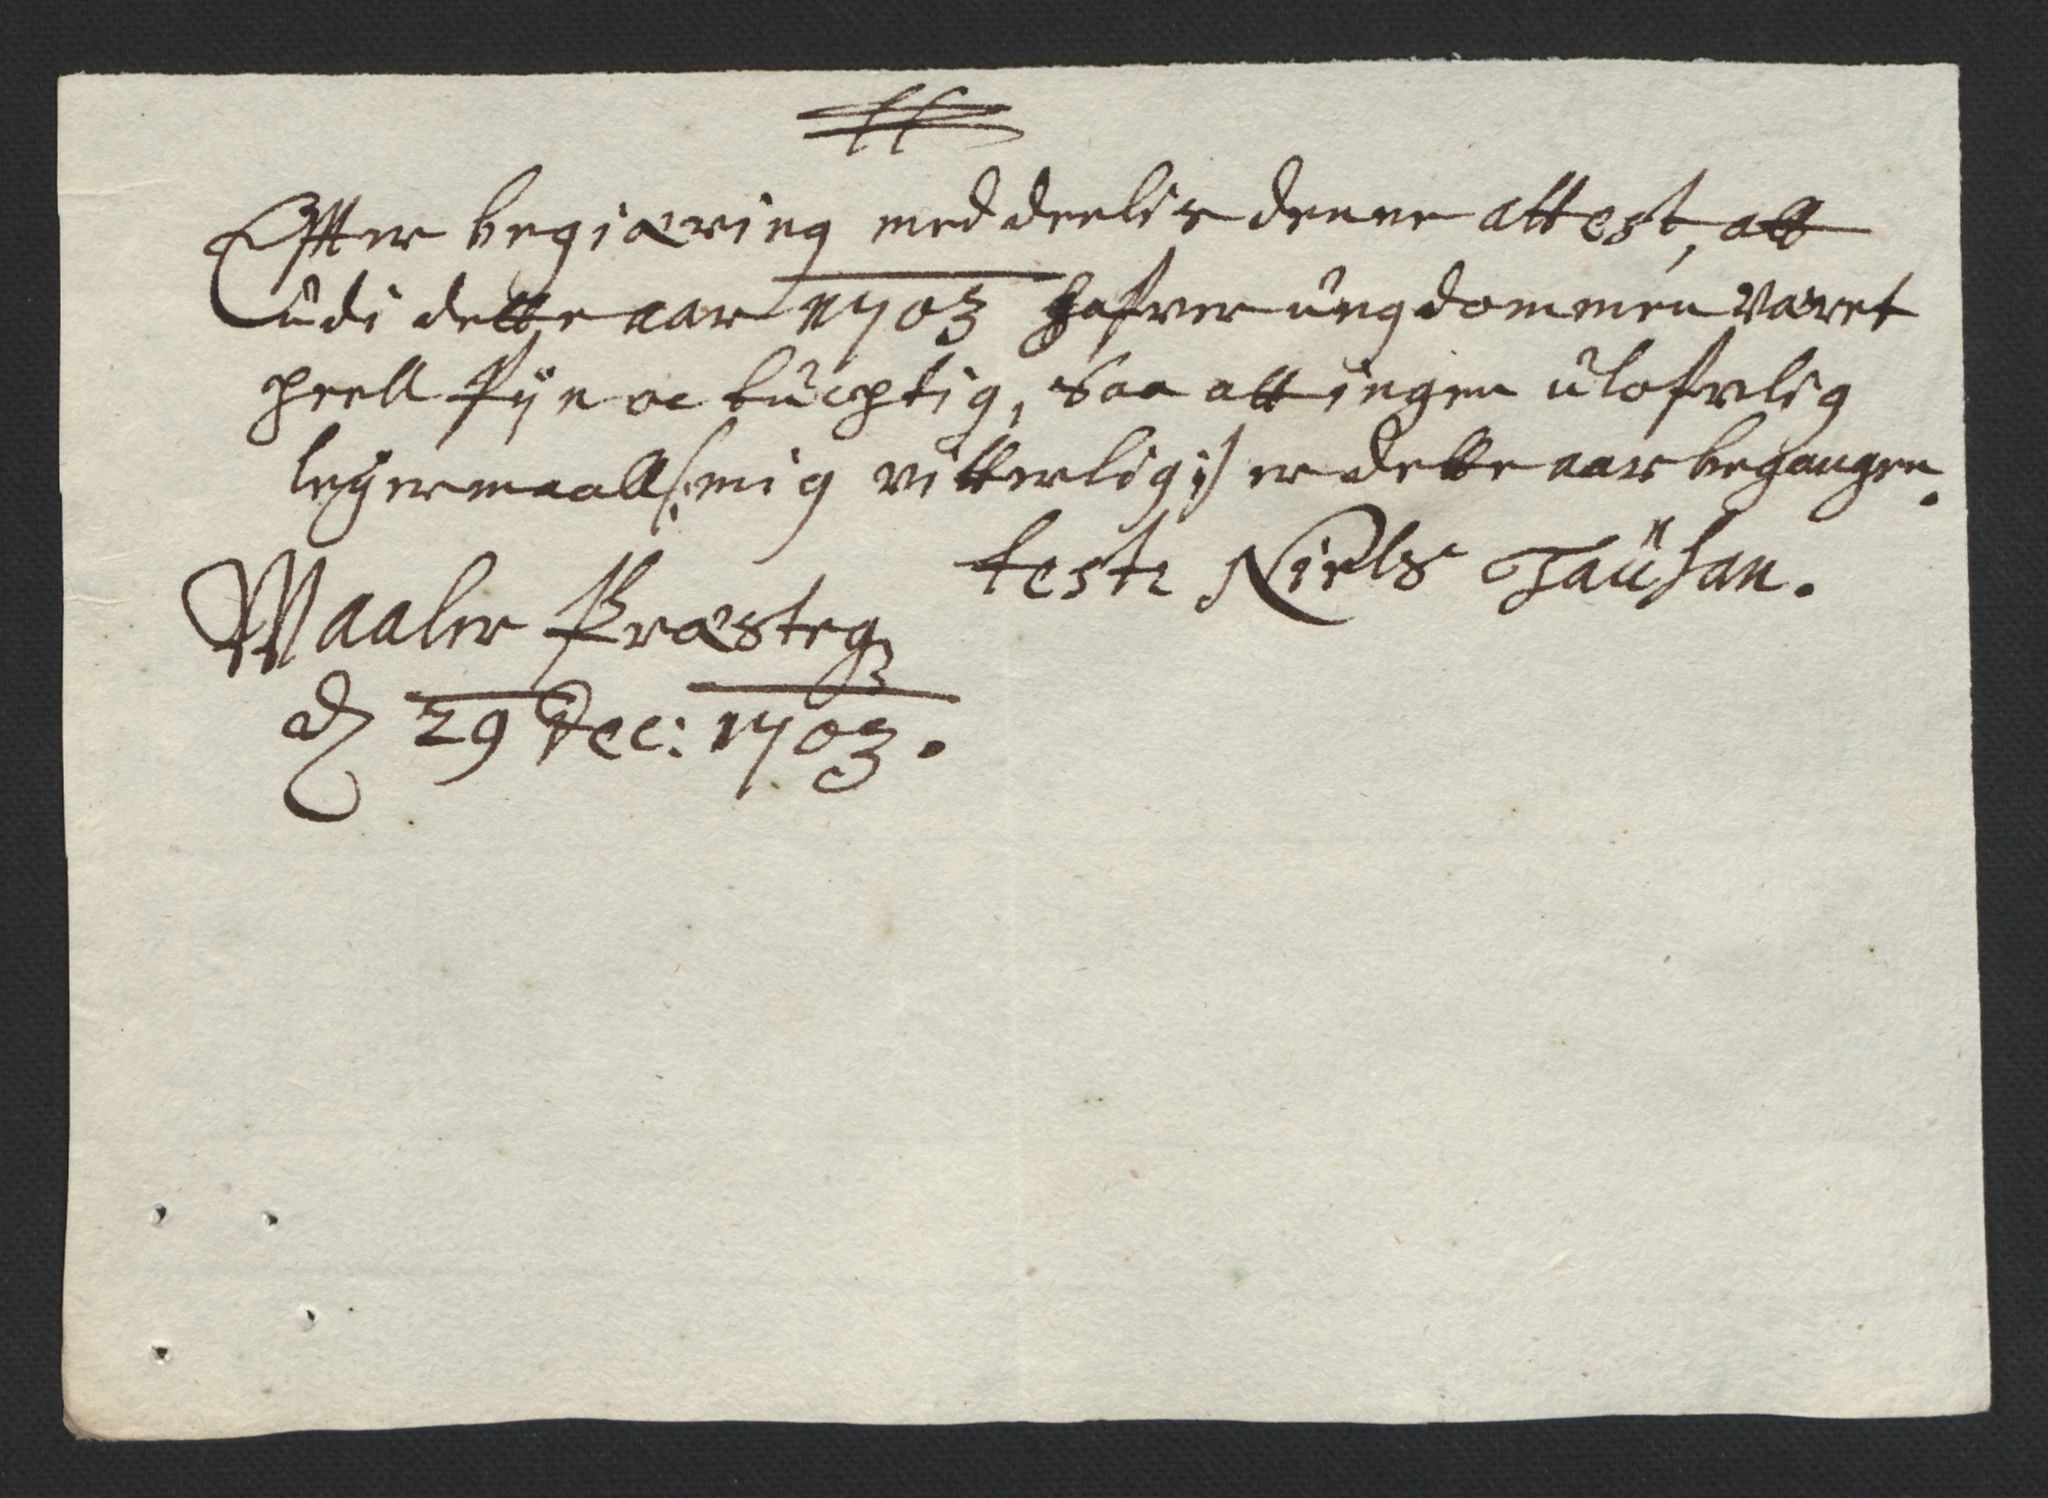 Effter begiæring meddeelis denne attest, att
udi dette aar 1703 hafver ungdommen været
heell skijn oc tuchtig, saa att ingen ulofvlig
leyermaall /: mig vitterlig :/ er dette aar begangen.
teste Niels Taüsan.
Waaler Præsteg
d 29 Dec: 1703.